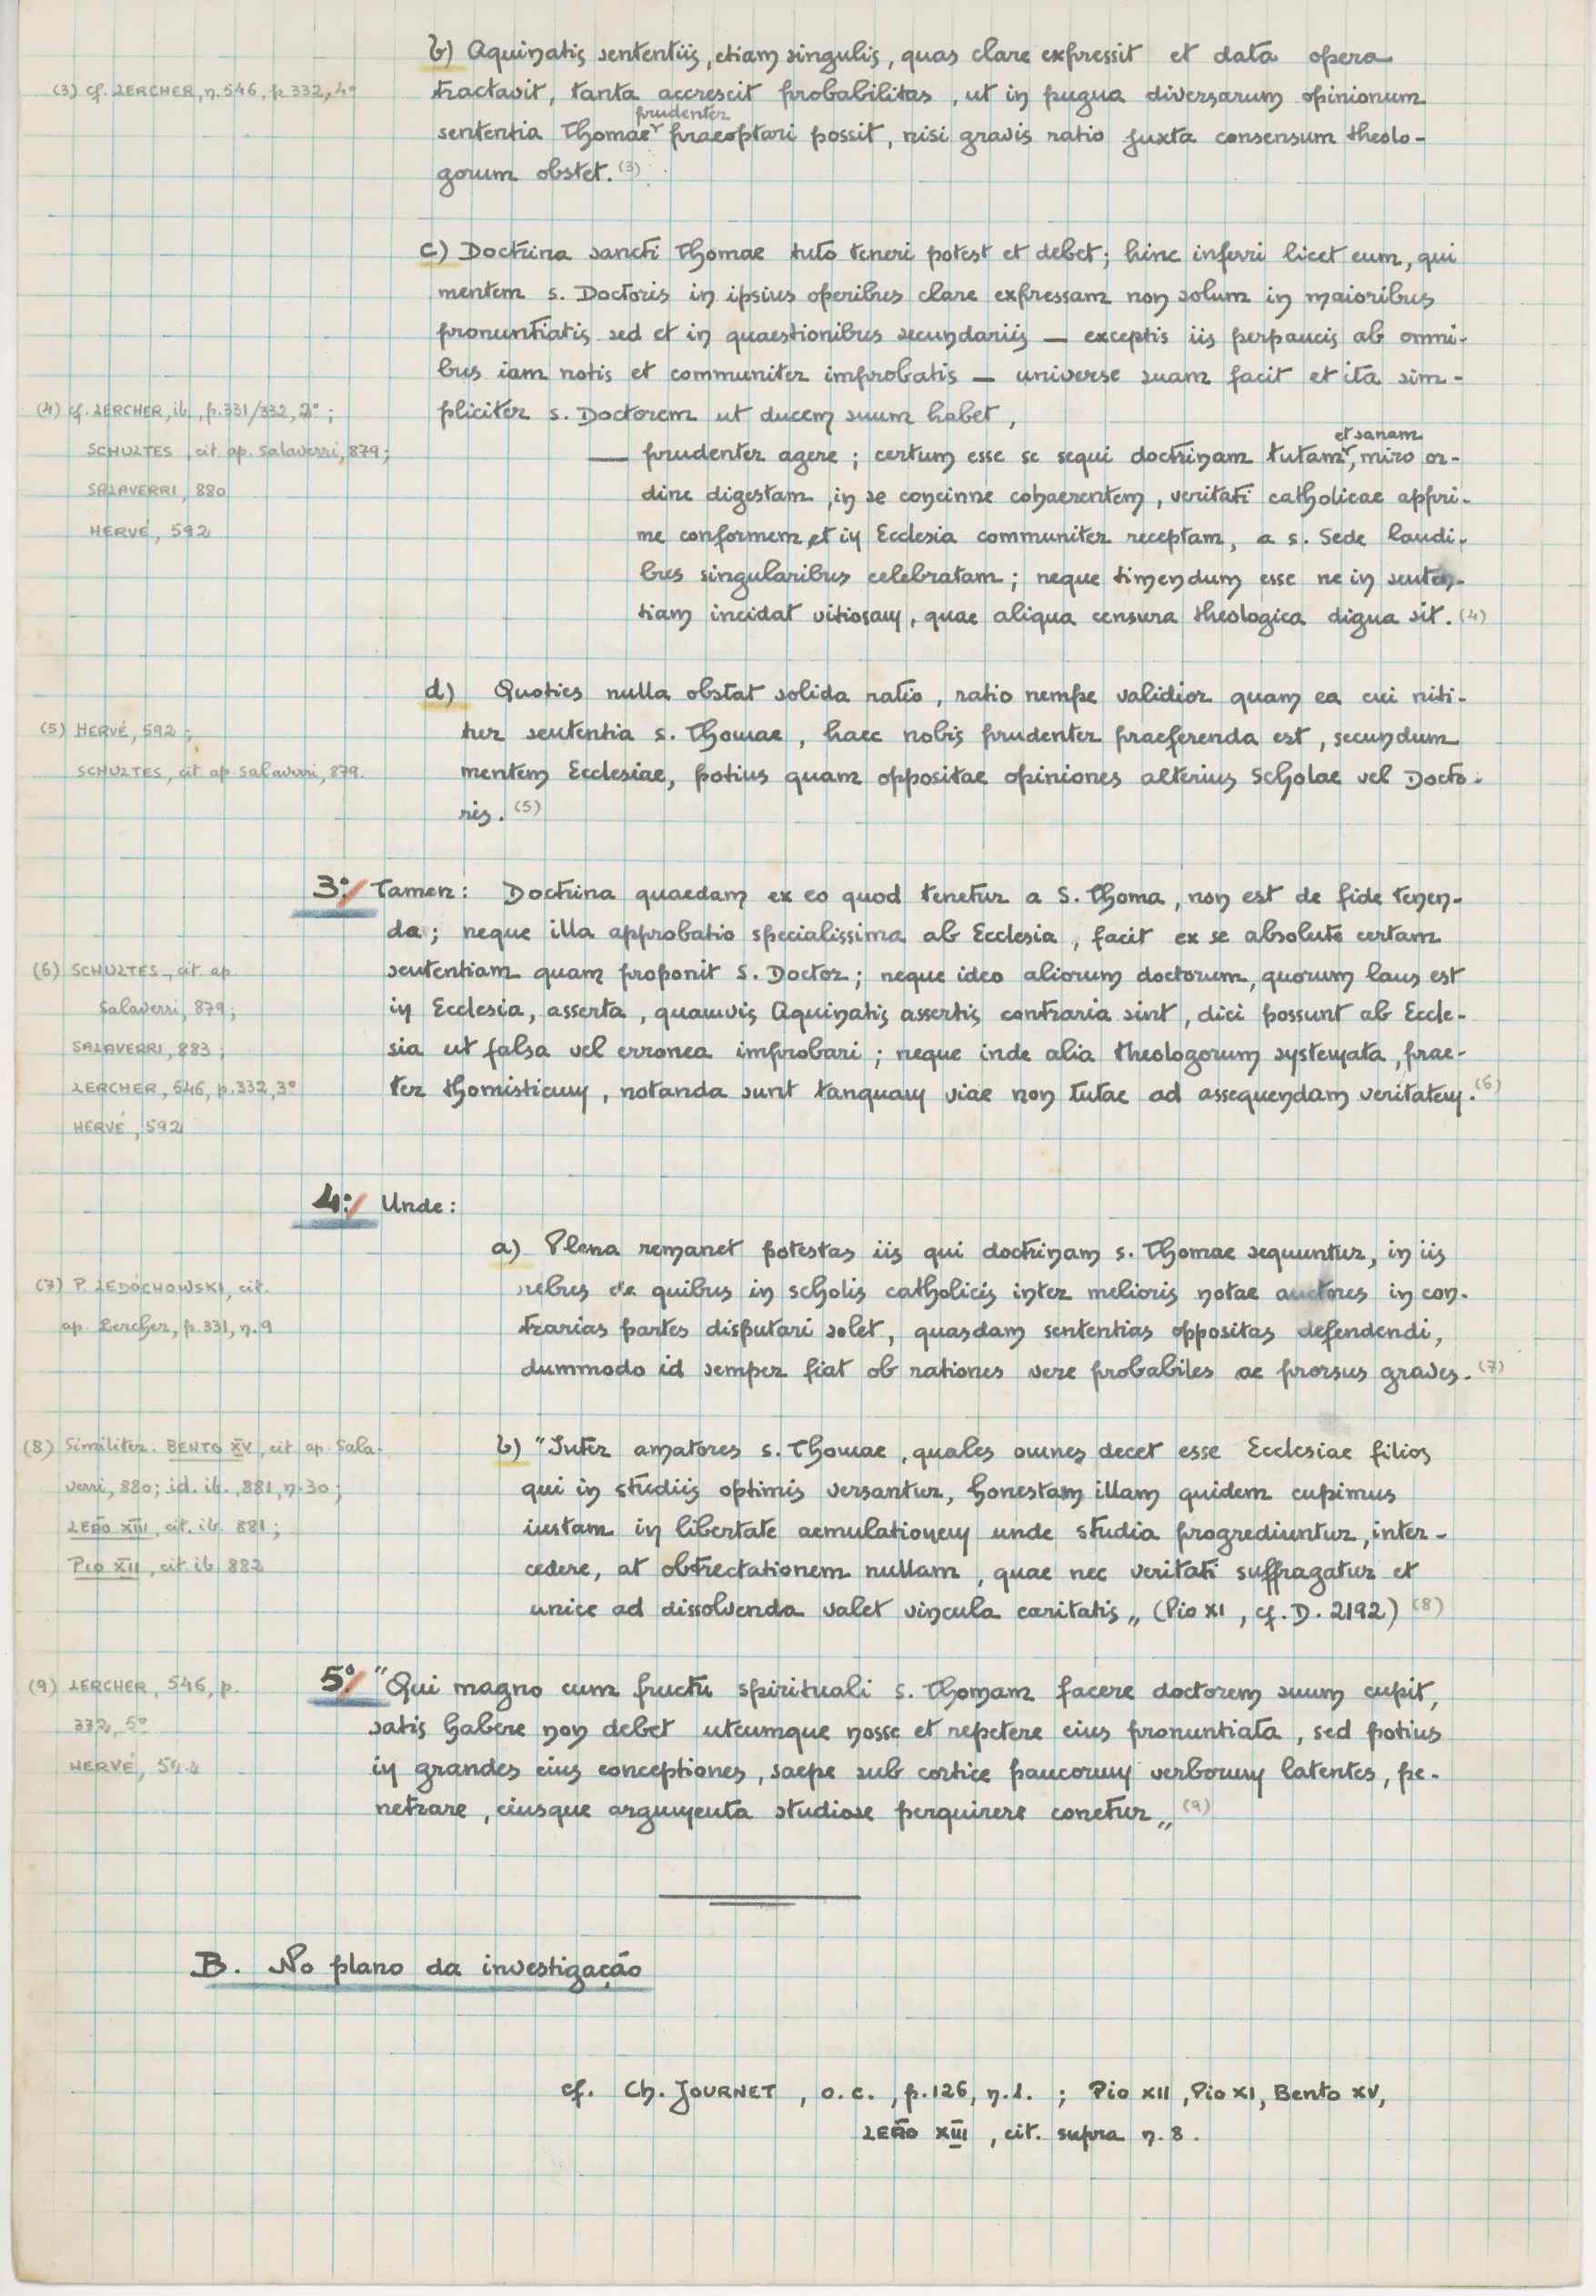 b) Aquinatis sententiis, etiam singulis, quas clare expressit et data opera
(3) cf. LERCHER, n. 546, p. 332, 4º
tractavit, tanta accrescit probabilitas, ut in pugna diversarum opinionum
prudenter
sententia Thomae praeoptari possit, nisi gravis ratio juxta consensum theolo-
gorum obstet. (3)
c) Doctrina sancti Thomae tuto teneri potest et debet; hinc inferri licet eum, qui
mentem s. Doctoris in ipsius operibus clare expressam non solum in maioribus
pronuntiatis sed et in quaestionibus secundariis — exceptis iis perpaucis ab omni-
bus iam notis et communiter improbatis — universe suam facit et ita sim-
pliciter s. Doctorem ut ducem suum habet,
(4) cf. LERCHER, ib., p. 331/332, 2º;
SCHULTES, cit. ap. Salaverri, 879;
SALAVERRI, 880
HERVÉ, 592
et sanam
— prudenter agere; certum esse se sequi doctrinam tutam, miro or-
dine digestam, in se concinne cohaerentem, veritati catholicae appri-
me conformem et in Ecclesia communiter receptam, a s. Sede laudi-
bus singularibus celebratam; neque timendum esse ne in senten-
tiam incidat vitiosam, quae aliqua censura theologica digna sit. (4)
d) Quoties nulla obstat solida ratio, ratio nempe validior quam ea cui niti-
tur sententia s. Thomae, haec nobis prudenter praeferenda est, secundum
mentem Ecclesiae, potius quam oppositae opiniones alterius Scholae vel Docto-
ris. (5)
(5) HERVÉ, 592;
SCHULTES, cit. ap. Salaverri, 879.
3º/ Tamen: Doctrina quaedam ex eo quod tenetur a S. Thoma, non est de fide tenen-
da; neque illa approbatio specialissima ab Ecclesia, facit ex se absolute certam
sententiam quam proponit S. Doctor; neque ideo aliorum doctorum, quorum laus est
in Ecclesia, asserta, quamvis Aquinatis assertis contraria sint, dici possunt ab Eccle-
sia ut falsa vel erronea improbari; neque inde alia theologorum systemata, prae-
ter thomisticum, notanda sunt tanquam viae non tutae ad assequendam veritatem. (6)
(6) SCHULTES, cit. ap.
Salaverri, 879;
SALAVERRI, 883;
LERCHER, 546, p. 332, 3º
HERVÉ, 592
4º/ Unde:
a) Plena remanet potestas iis qui doctrinam s. Thomae sequuntur, in iis
rebus de quibus in scholis catholicis inter melioris notae auctores in con-
trarias partes disputari solet, quasdam sententias oppositas defendendi,
dummodo id semper fiat ob rationes vere probabiles ac prorsus graves. (7)
(7) P. LEDÓCHOWSKI, cit.
ap. Lercher, p. 331, n. 9
b) "Inter amatores s. Thomae, quales omnes decet esse Ecclesiae filios
qui in studiis optimis versantur, honestam illam quidem cupimus
iustam in libertate aemulationem unde studia progrediuntur, inter-
cedere, at obtrectationem nullam, quae nec veritati suffragatur et
unice ad dissolvenda valet vincula caritatis„ (Pio XI, cf. D. 2192) (8)
(8) Similiter: BENTO XV, cit. ap. Sala-
verri, 880; id. ib., 881, n. 30;
LEÃO XIII, cit. ib. 881;
PIO XII, cit. ib. 882
5º/ "Qui magno cum fructu spirituali S. Thomam facere doctorem suum cupit,
satis habere non debet utcumque nosse et repetere eius pronuntiata, sed potius
in grandes eius conceptiones, saepe sub cortice paucorum verborum latentes, pe-
netrare, eiusque argumenta studiose perquirere conetur„ (9)
(9) LERCHER, 546, p.
332, 5º
HERVÉ,
B. No plano da investigação
cf. Ch. JOURNET, o. c., p. 126, n. 1.; Pio XII, Pio XI, Bento XV,
LEÃO XIII, cit. supra n. 8.